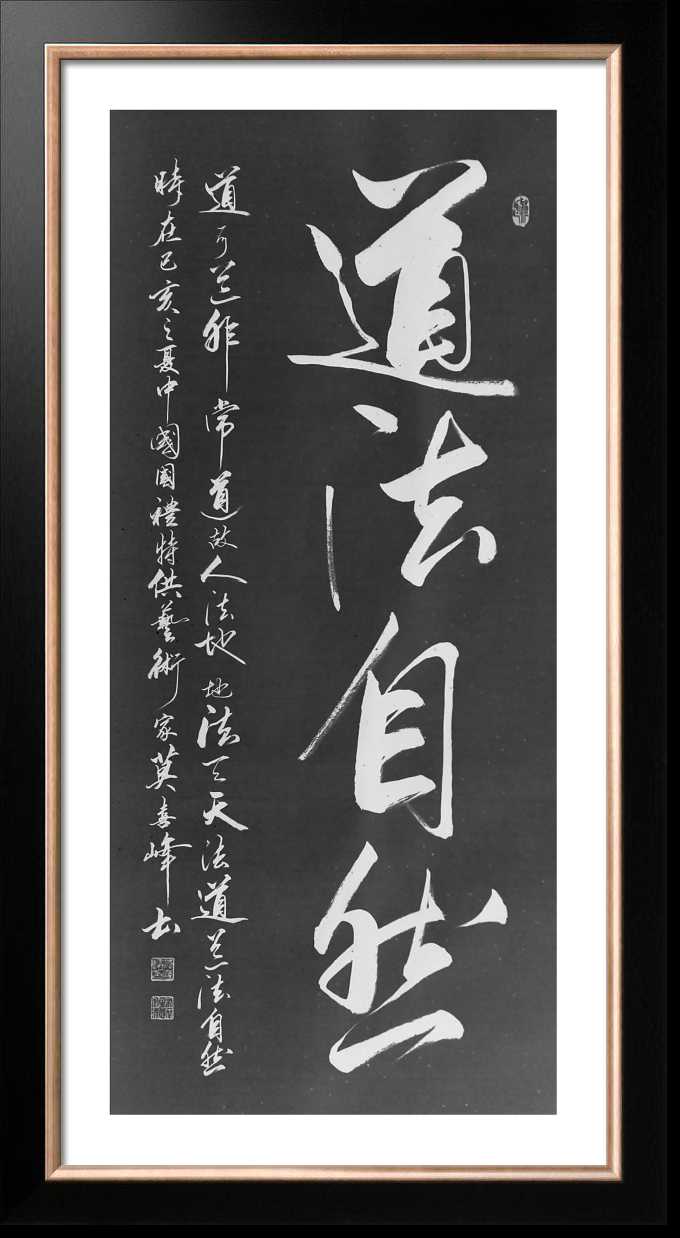 道法自然
道可道非常道故人法地地法天天法道道法自然
時在己亥之夏中國國禮特供藝術家莫喜峰書